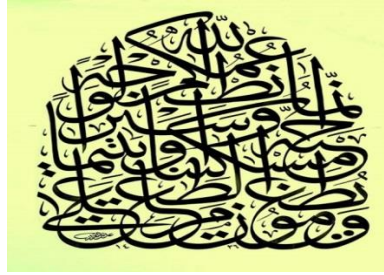 ويطعمون الطعام على
حبه مسكينا ويتيما
وأسيرا إنما
نطعمكم لوجه
الله